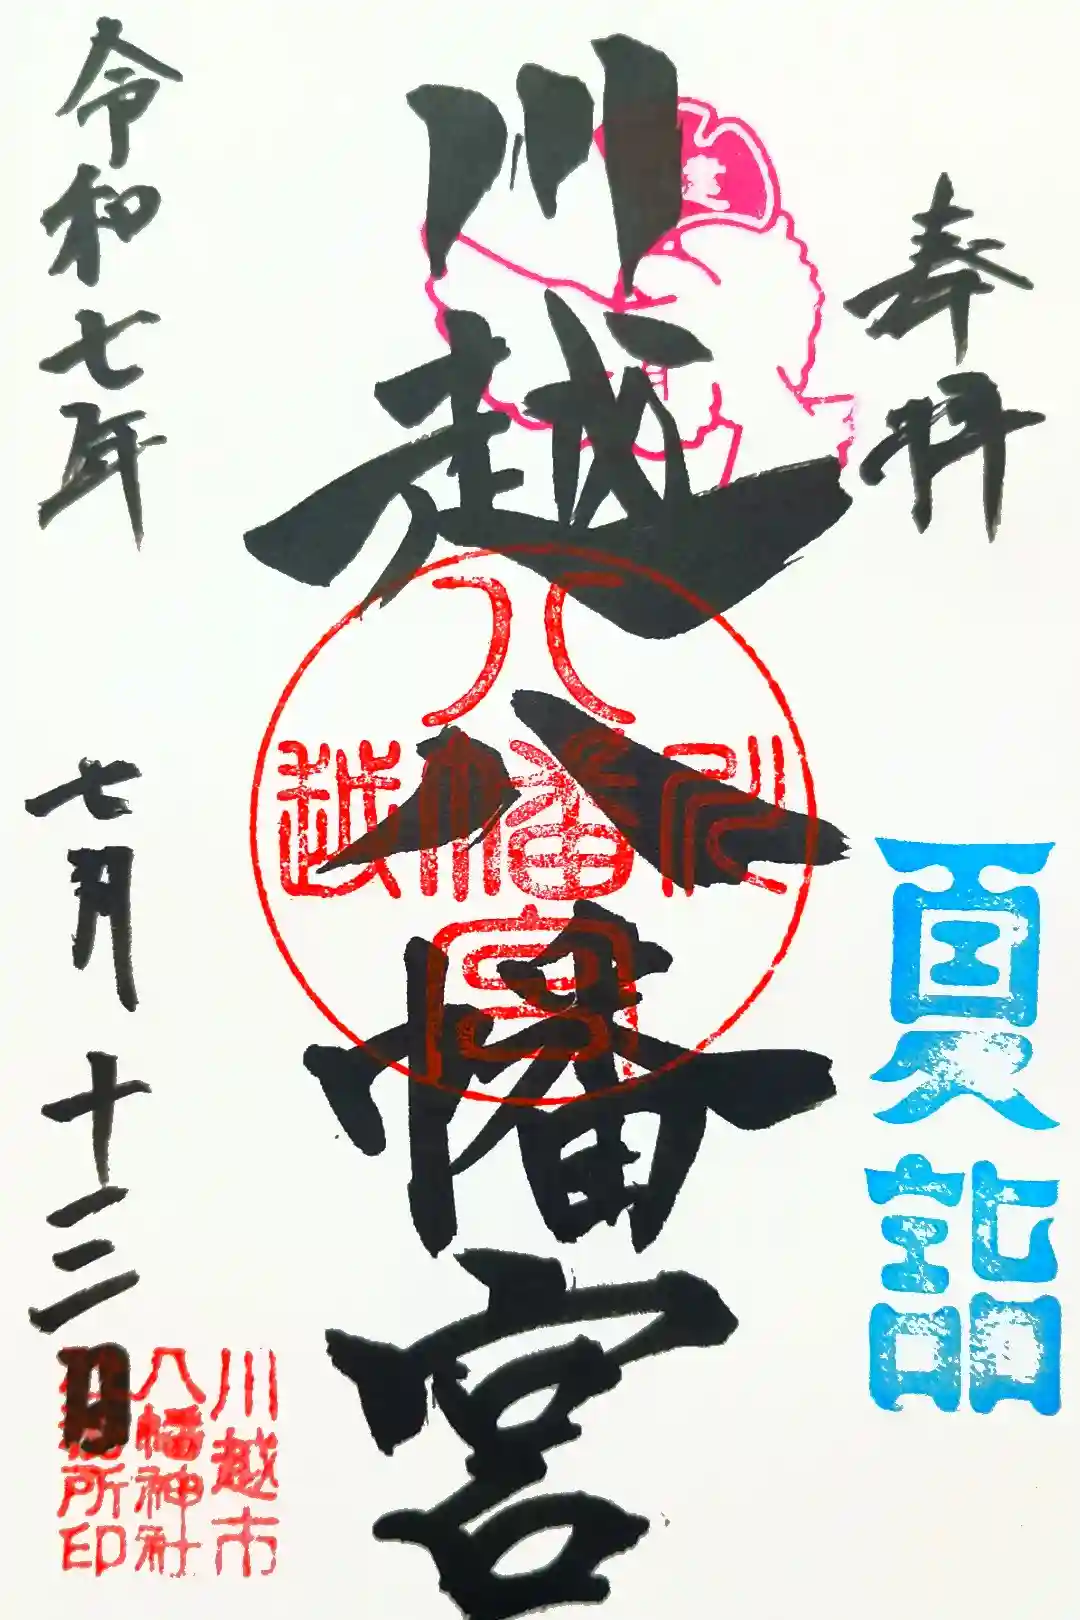 奉拝
夏詣
川越八幡宮
八
川幡越
宮
令和七年
七月十二日
川越市
八幡神社
所印